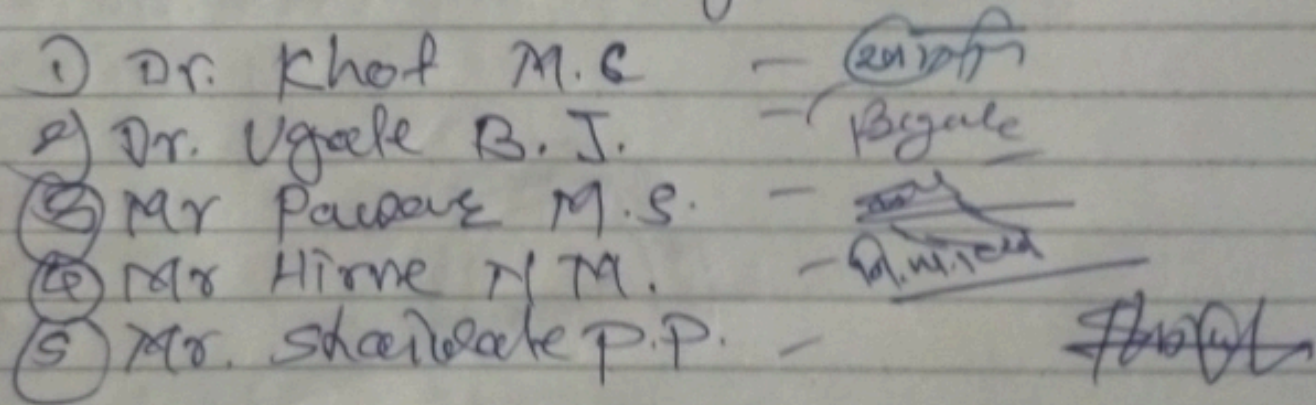 1) Dr. Khot M.S -
2) Dr. Ugale B.J. - Bugale
3) Mr Pawar M.S. -
4) Mr Hirve N M. -
5) Mr. Shailate P.P. -